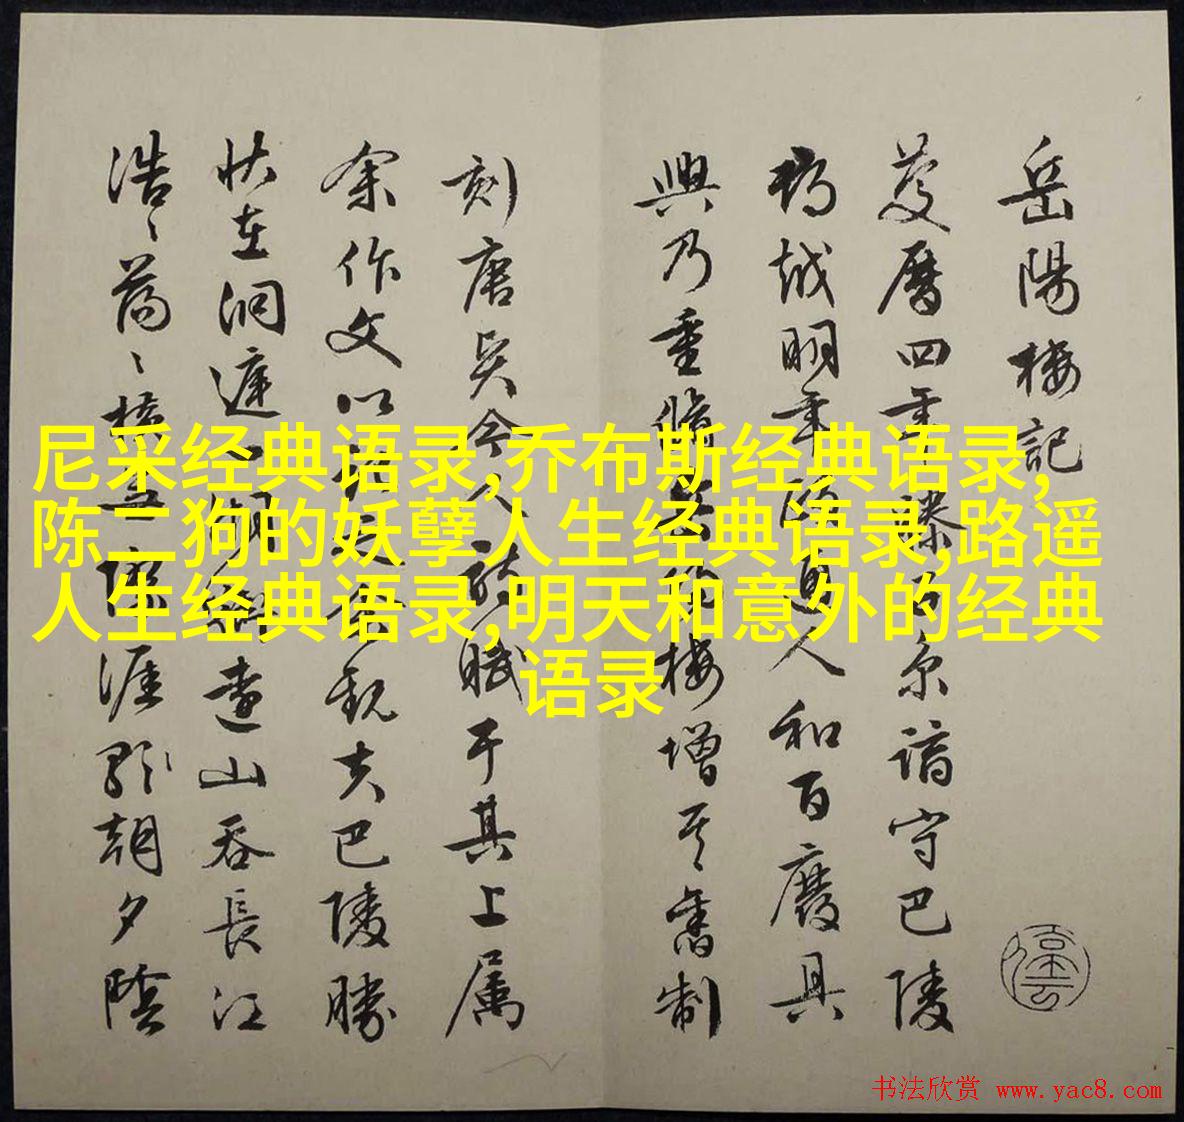 岳陽楼記
慶曆四年滕子京謫守巴陵
郡越明年政通人和百廢具
興乃重脩岳陽楼增其舊制
刻唐賢今人詩賦于其上属
余作文以記之予観夫巴陵勝
状在洞庭一湖銜遠山吞長江
浩〻蕩〻横無際涯朝夕陰
尼采经典语录,乔布斯经典语录,
陈二狗的妖孽人生经典语录,路遥
人生经典语录,明天和意外的经典
语录
书法欣赏 www.yac8.com